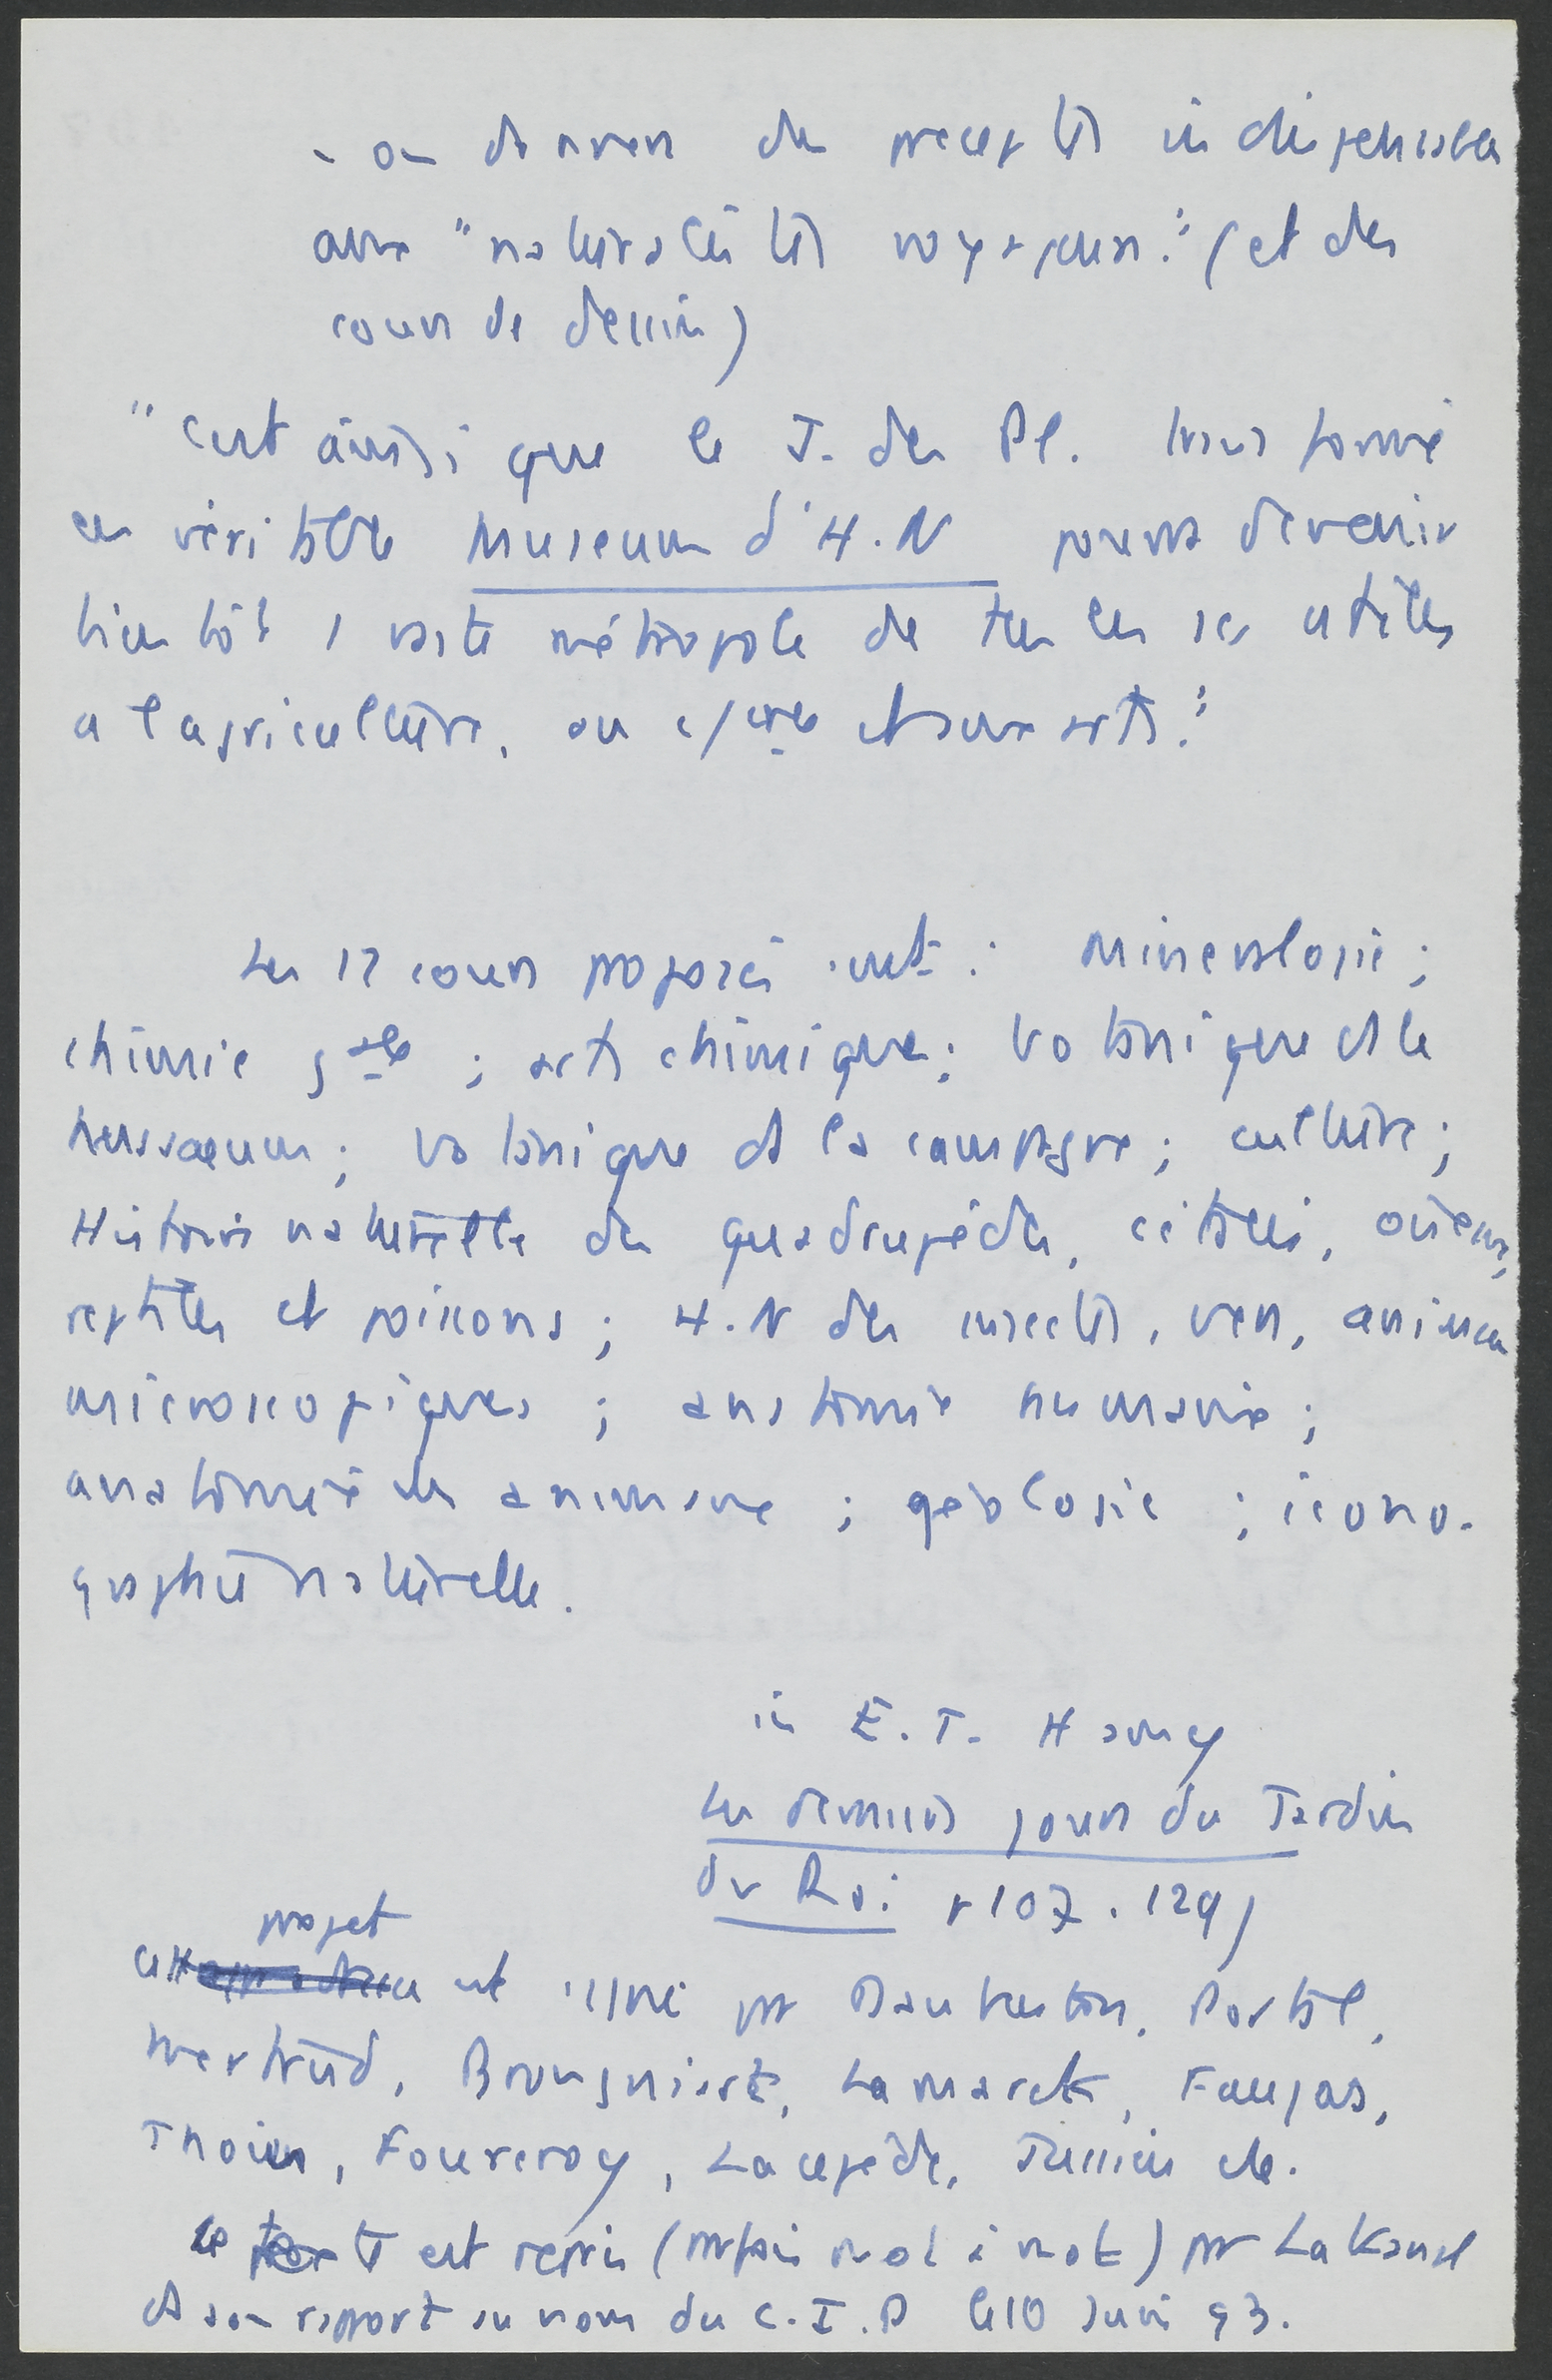 - on donnera des preceptes indispensables
aux "naturalistes voyageurs." (et des
cours de dessin)
"C'est ainsi que le J. des Pl. transformé
en véritable Museum d'H.N pourra devenir
bientôt 1 vaste métropole de ttes les sces utiles
a l'agriculture, au c/erce et aux arts."
Les 12 cours proposés sont : Mineralogie ;
chimie gale ; arts chimiques ; botanique ds le
museum ; botanique ds la campagne ; culture ;
Histoire naturelle des quadrupèdes, cétacés, oiseaux,
reptiles et poissons ; H.N des insectes, vers, animaux
microscopiques ; anatomie humaine ;
anatomie des animaux ; géologie ; icono-
graphie naturelle.
in E.T. Hamy
Les derniers jours du Jardin
du Roi p 107. 129)
projet
ce est signé par Daubenton, Portal,
Mertrud, Brongniart, Lamarck, Faujas,
Thouin, Fourcroy, Lacepède, Jussieu etc.
le texte est repris (parfois mot à mot) par Lakanal
ds son rapport au nom du C.I.P le 10 Juin 93.